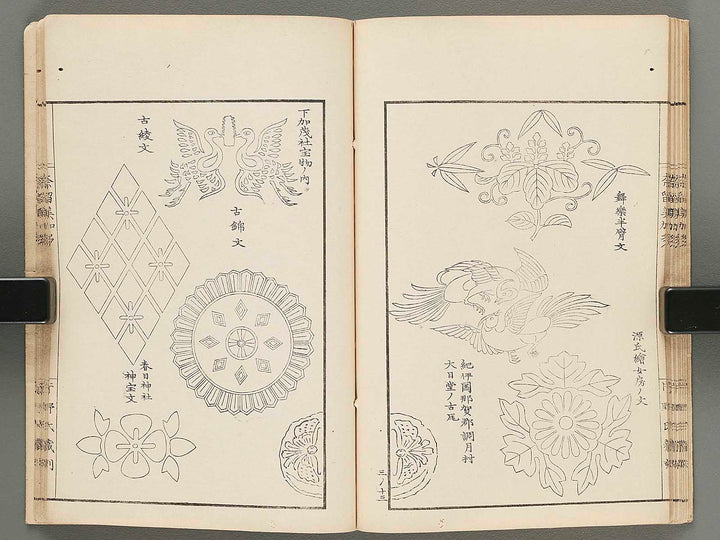 舞樂半臂文
源氏繪女房ノ文
紀伊國那賀郡調月村
大日堂ノ古瓦
三ノ十三
下加茂社宝物ノ内
古錦文
古綾文
春日神社
神宝文